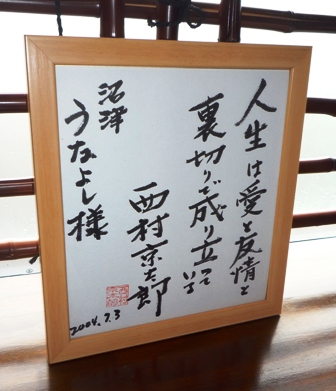 人生は愛と友情と
裏切りで成り立って
いる
西村京太郎
沼津
うなよし様
2004.7.3